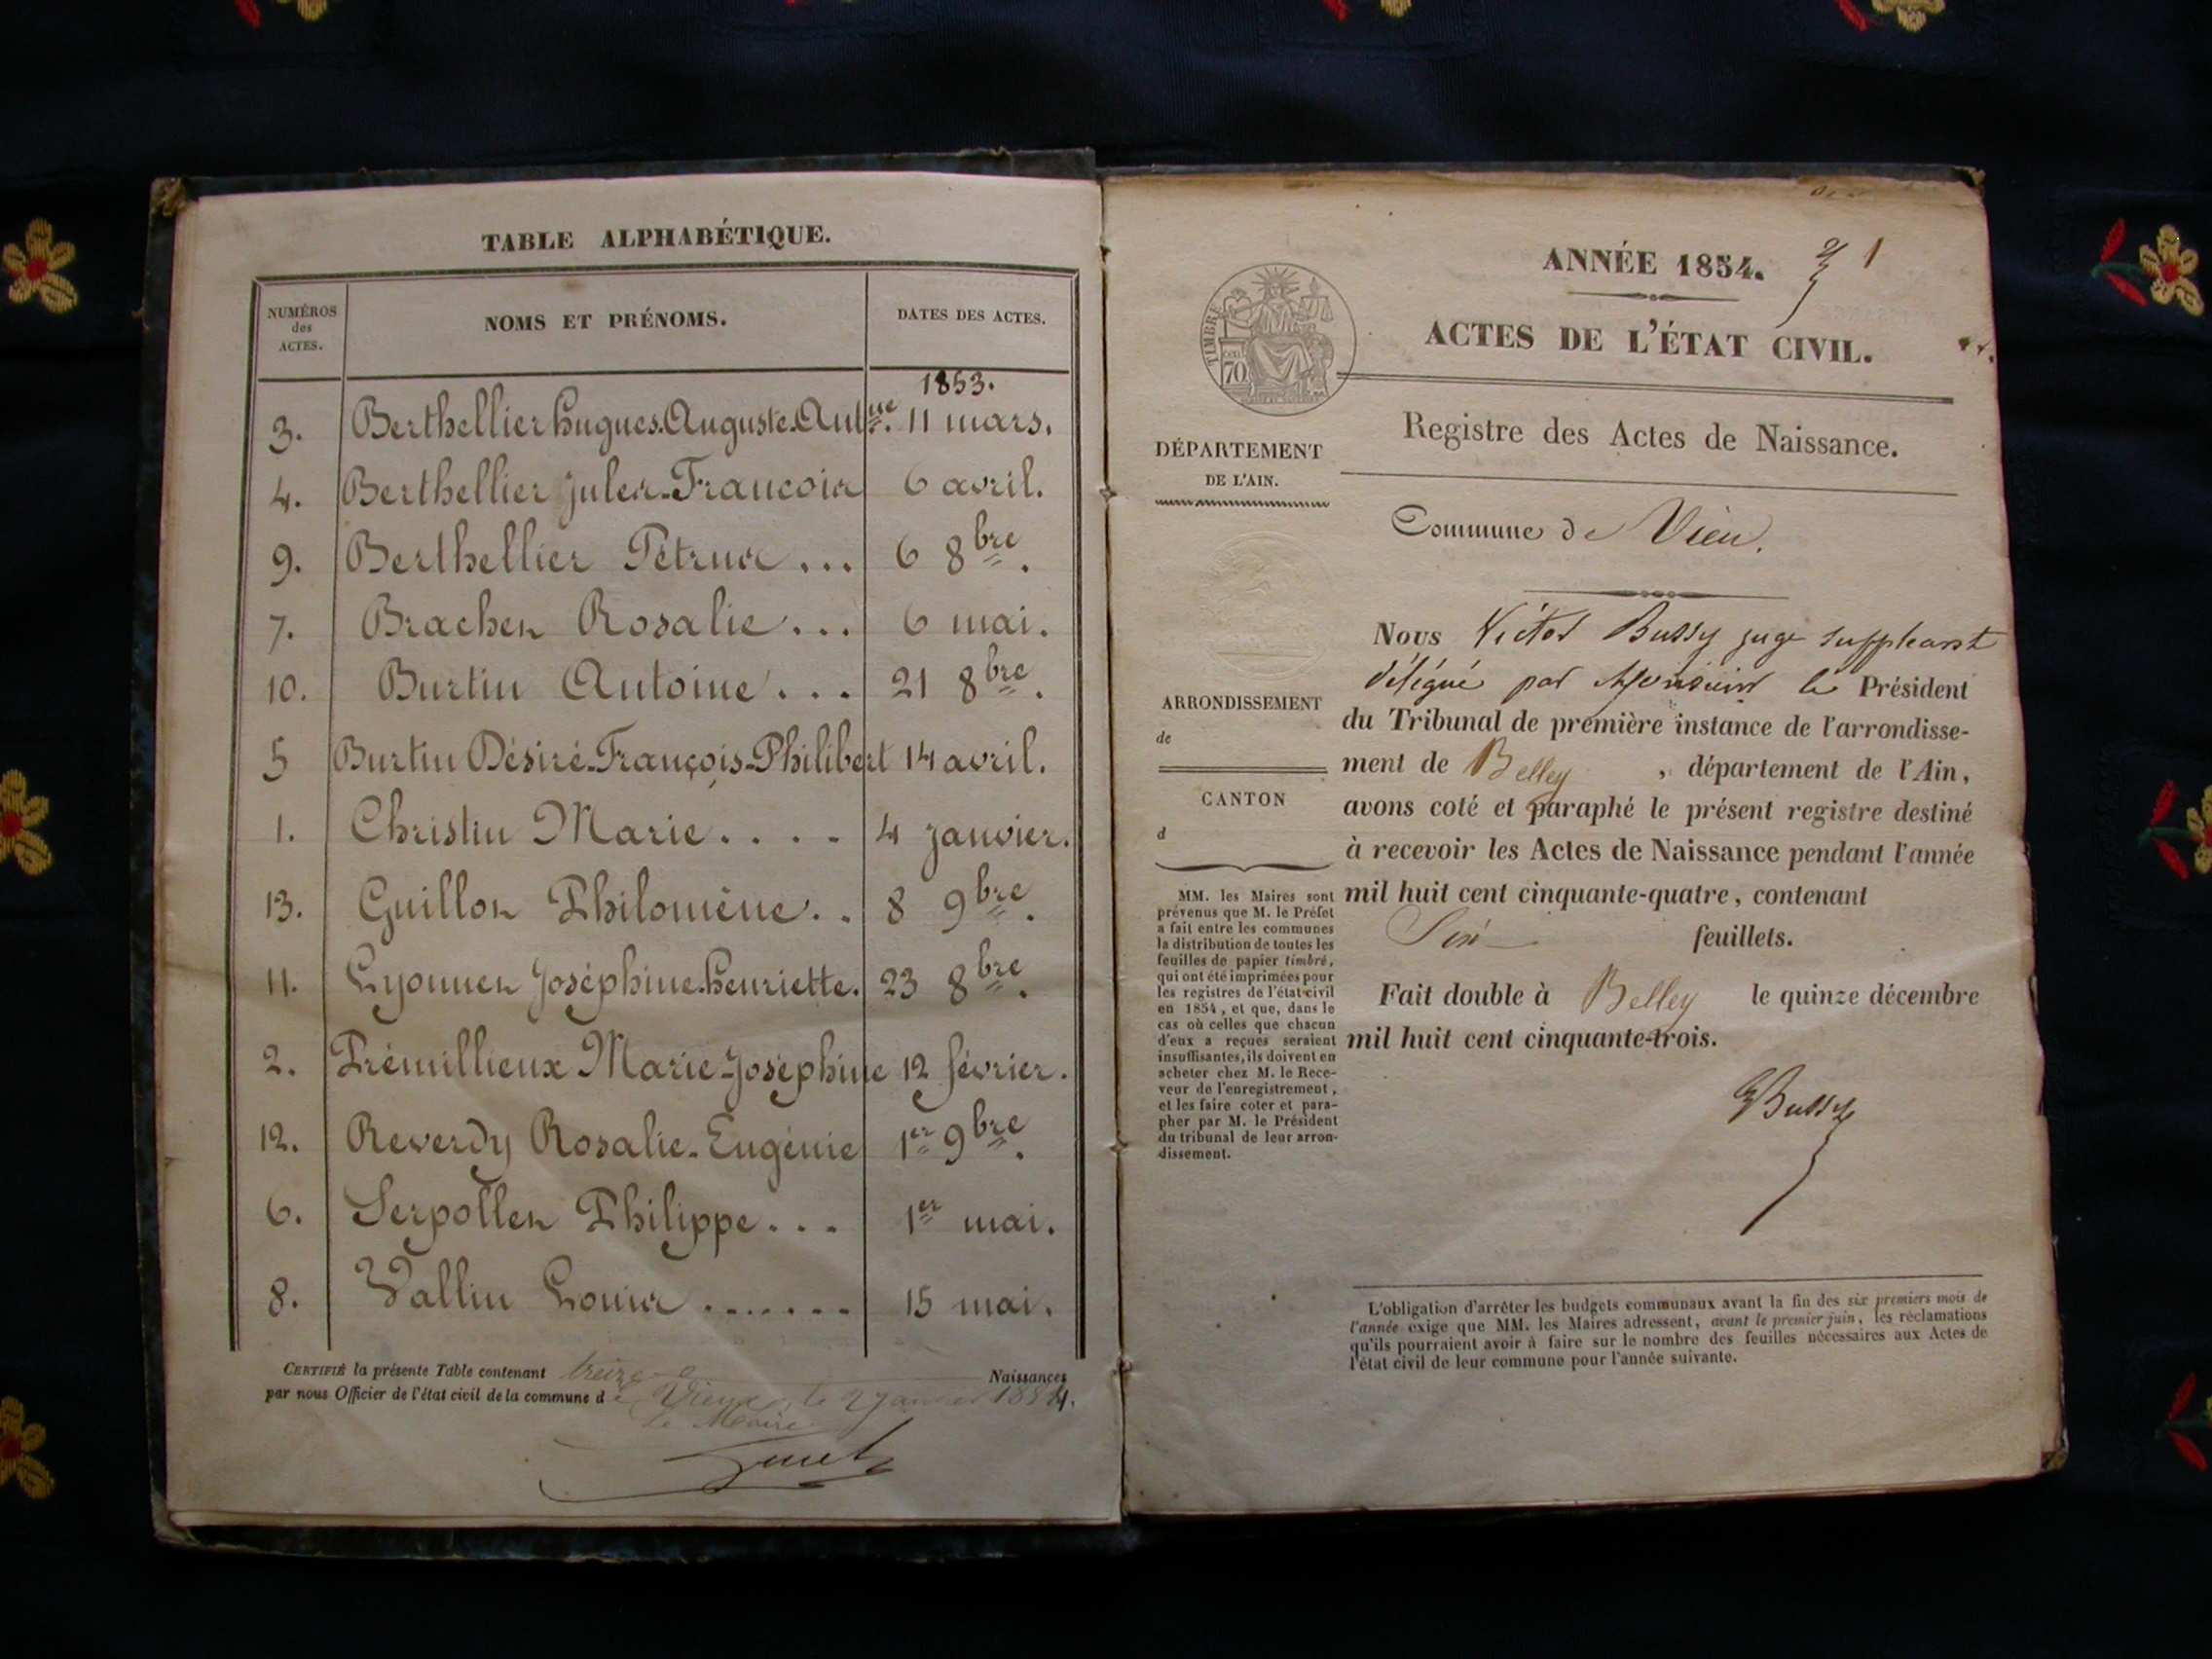 TABLE ALPHABÉTIQUE.
NUMÉROS des ACTES. NOMS ET PRÉNOMS. DATES DES ACTES.
1853.
3. Berthellier hugues-Auguste-Antne. 11 mars.
4. Berthellier jules-Francois 6 avril.
9. Berthellier Pétrus... 6 8bre.
7. Brachet Rosalie... 6 mai.
10. Burtin Antoine... 21 8bre.
5 Burtin Désiré-François-Philibert 14 avril.
1. Christin Marie.... 4 janvier.
13. Guillot Philomène.. 8 9bre.
11. Lyonnet Joséphine-henriette. 23 8bre.
2. Prémillieux Marie-Joséphine 12 février.
12. Reverdy Rosalie-Eugénie 1er 9bre.
6. Serpollet Philippe... 1er mai.
8. Vallin Louis....... 15 mai.
CERTIFIÉ la présente Table contenant treize Naissances
par nous Officier de l'état civil de la commune de Vieu, le 2 janvier 1854.
Le Maire
ANNÉE 1854. 1
ACTES DE L'ÉTAT CIVIL.
TIMBRE
70
Registre des Actes de Naissance.
DÉPARTEMENT
DE L'AIN.
Commune de Vieu.
ARRONDISSEMENT
de
CANTON
d
MM. les Maires sont
prévenus que M. le Préfet
a fait entre les communes
la distribution de toutes les
feuilles de papier timbré,
qui ont été imprimées pour
les registres de l'état civil
en 1854, et que, dans le
cas où celles que chacun
d'eux a reçues seraient
insuffisantes, ils doivent en
acheter chez M. le Rece-
veur de l'enregistrement,
et les faire coter et para-
pher par M. le Président
du tribunal de leur arron-
dissement.
Nous Victor Bussy juge suppleant
délégué par Monsieur le Président
du Tribunal de première instance de l'arrondisse-
ment de Belley, département de l'Ain,
avons coté et paraphé le présent registre destiné
à recevoir les Actes de Naissance pendant l'année
mil huit cent cinquante-quatre, contenant
Six feuillets.
Fait double à Belley le quinze décembre
mil huit cent cinquante-trois.
Bussy
L'obligation d'arrêter les budgets communaux avant la fin des six premiers mois de
l'année exige que MM. les Maires adressent, avant le premier juin, les réclamations
qu'ils pourraient avoir à faire sur le nombre des feuilles nécessaires aux Actes de
l'état civil de leur commune pour l'année suivante.